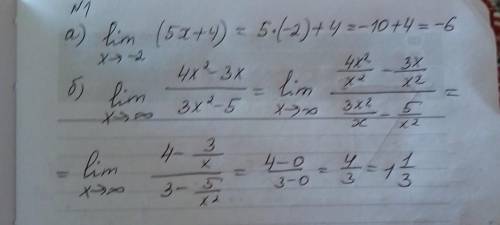 №1
а) lim x→-2 (5x+4) = 5·(-2)+4 = -10+4 = -6
б) lim x→∞ (4x²-3x)/(3x²-5) = lim x→∞ (4x²/x² - 3x/x²)/(3x²/x - 5/x²) =
= lim x→∞ (4 - 3/x)/(3 - 5/x²) = (4-0)/(3-0) = 4/3 = 1 1/3